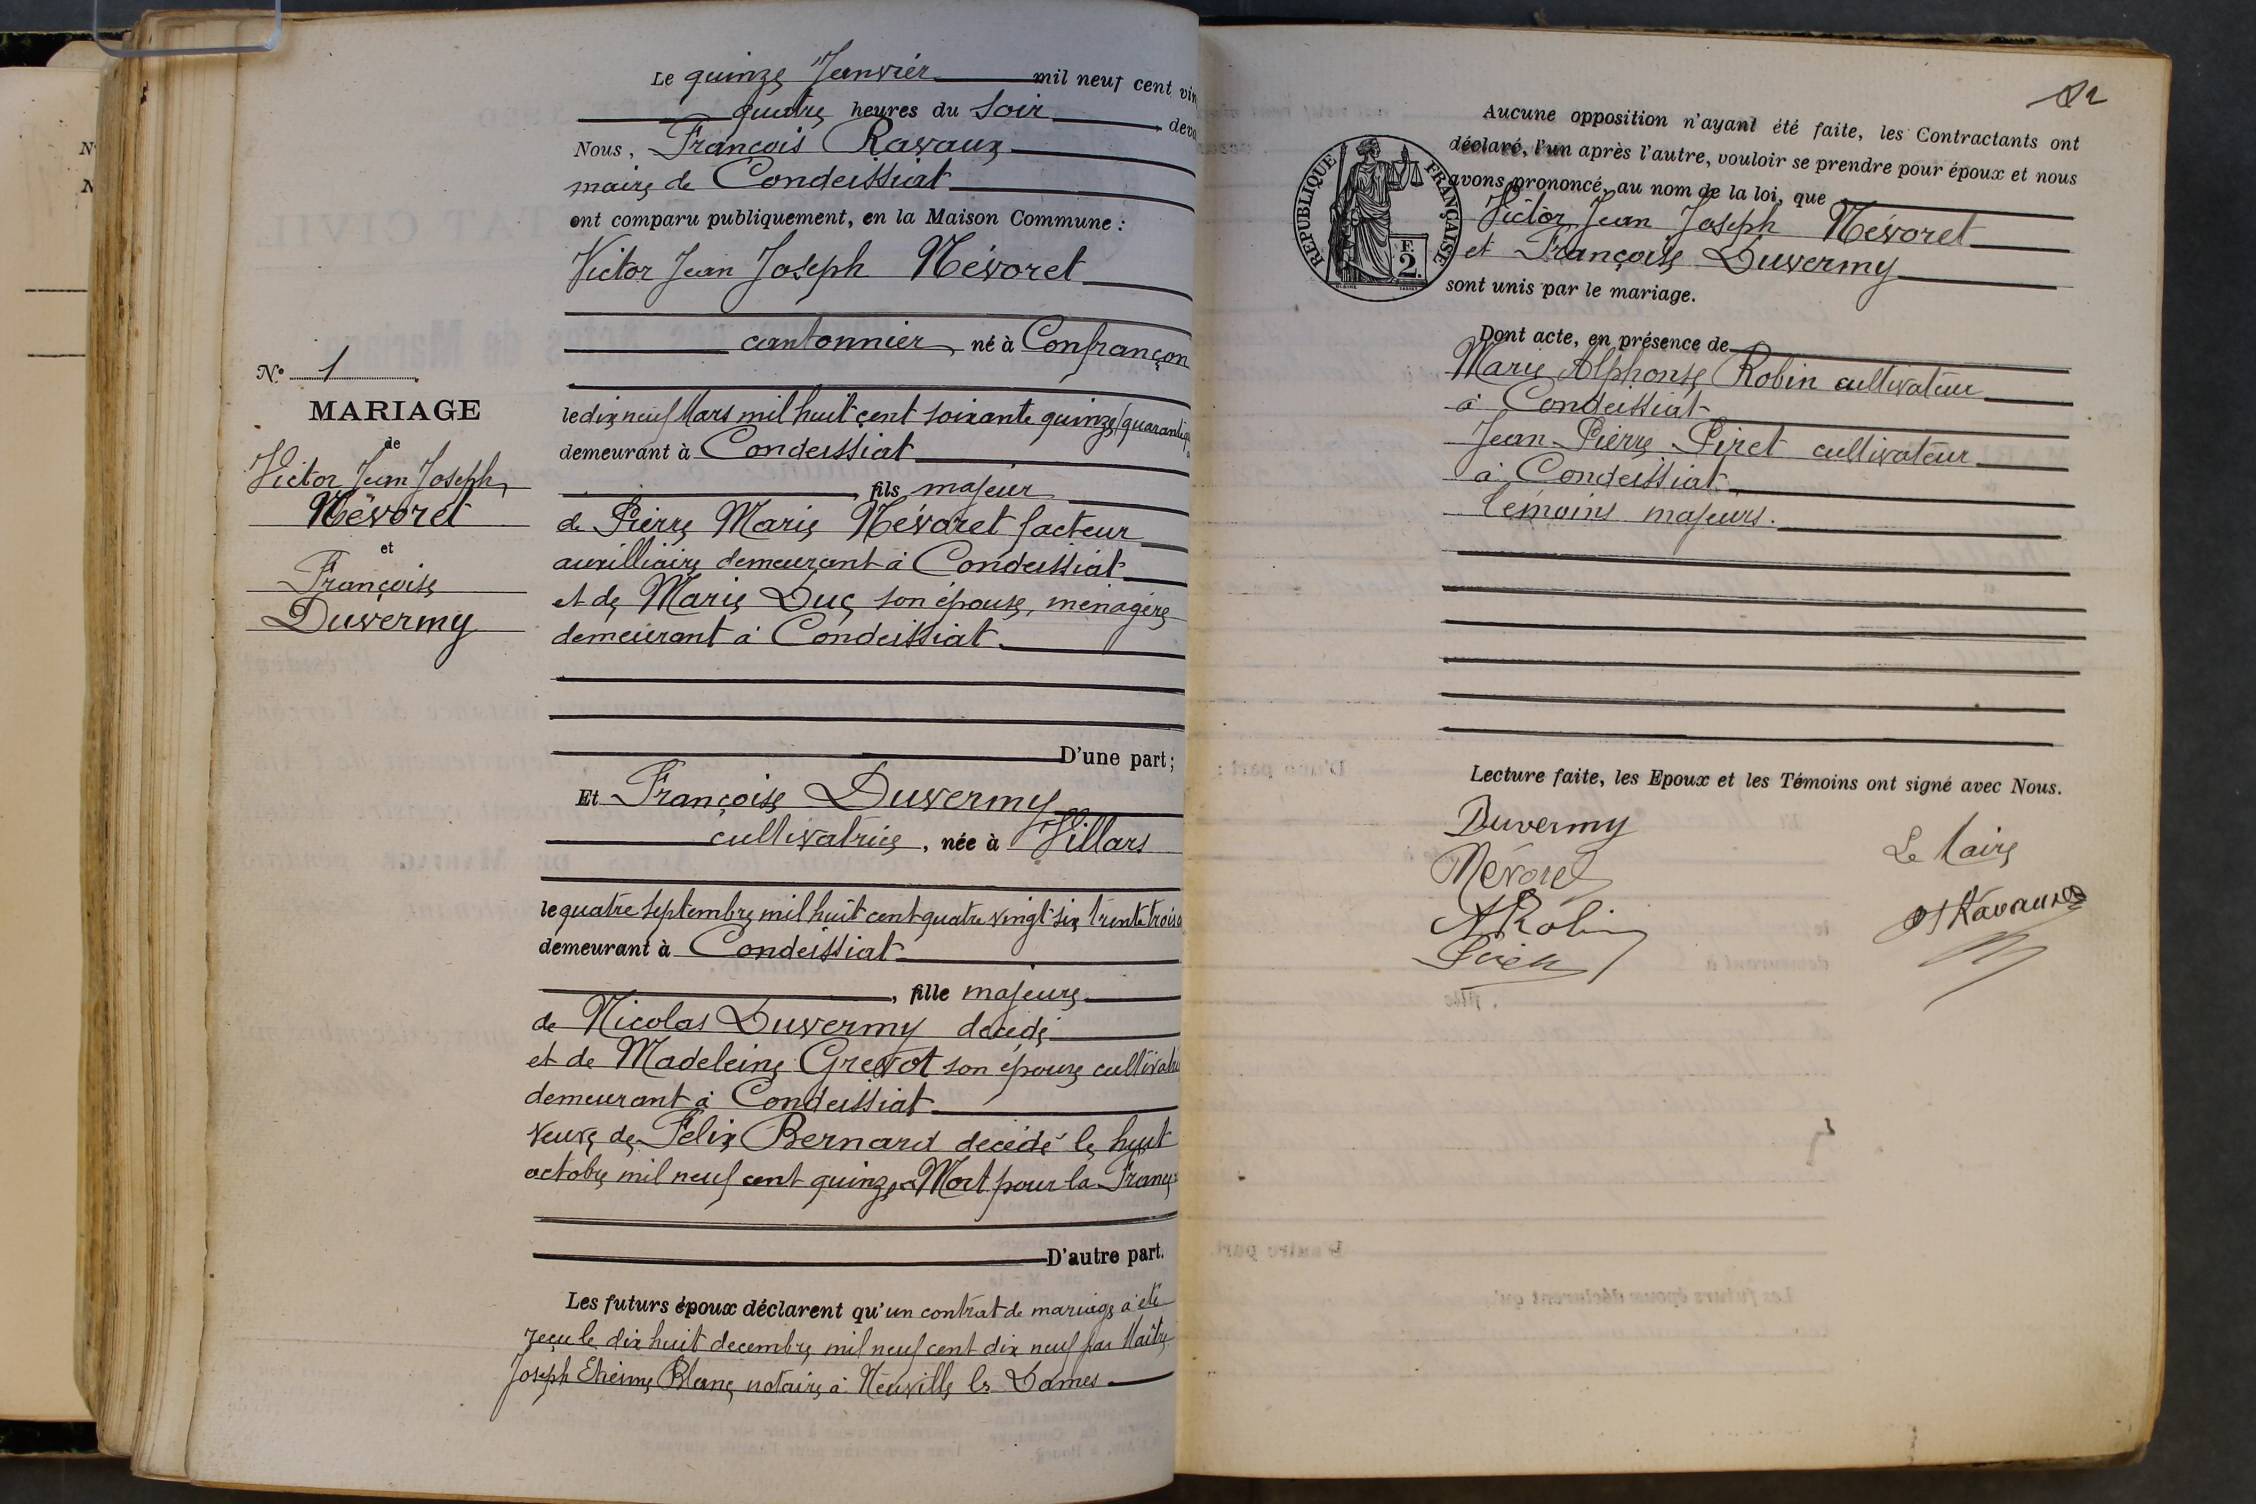 Le quinze Janvier mil neuf cent vin
quatre heures du soir deva
Nous, François Ravaux
maire de Condeissiat
ont comparu publiquement, en la Maison Commune :
Victor Jean Joseph Névoret
cantonnier, né à Confrançon
le dix neuf Mars mil huit cent soixante quinze
demeurant à Condeissiat
, fils majeur
de Pierre Marie Névoret facteur
auxilliaire demeurant à Condeissiat
et de Marie Duc son épouse, ménagère
demeurant à Condeissiat
D'une part ;
Et Françoise Duvermy
cultivatrice, née à Villars
le quatre septembre mil huit cent quatre vingt six trente trois
demeurant à Condeissiat
, fille majeure
de Nicolas Duvermy décédé
et de Madeleine Grevot son épouse
demeurant à Condeissiat
veuve de Félix Bernard décédé le huit
octobre mil neuf cent quinze Mort pour la France
D'autre part.
Les futurs époux déclarent qu'un contrat de mariage a été
reçu le dix huit decembre mil neuf cent dix neuf par Maître
Joseph Etienne Blanc notaire à Neuville les Dames
N° 1
MARIAGE
de
Victor Jean Joseph
Névoret
et
Françoise
Duvermy
RÉPUBLIQUE FRANÇAISE
F.
2.
Aucune opposition n'ayant été faite, les Contractants ont
déclaré, l'un après l'autre, vouloir se prendre pour époux et nous
avons prononcé, au nom de la loi, que
Victor Jean Joseph Névoret
et Françoise Duvermy
sont unis par le mariage.
Dont acte, en présence de
Marie Alphonse Robin cultivateur
à Condeissiat
Jean-Pierre Piret cultivateur
à Condeissiat
témoins majeurs.
Lecture faite, les Epoux et les Témoins ont signé avec Nous.
Duvermy
Névoret
A Robin
Le Maire
Ravaux